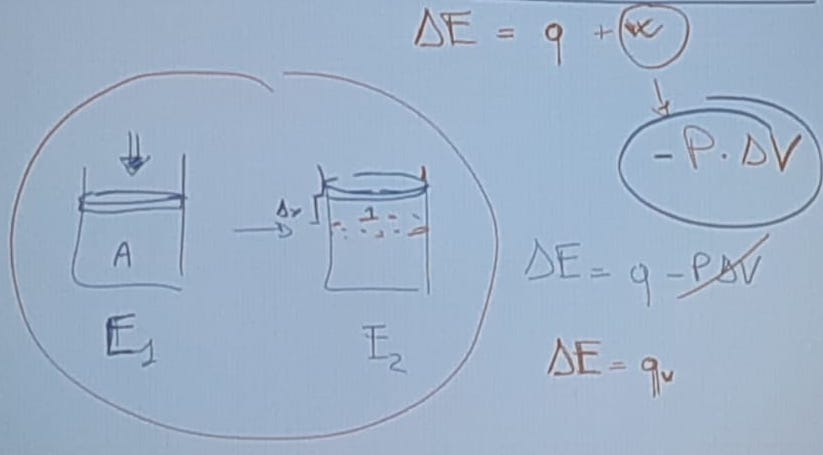 ΔE = q + w
- P. ΔV
A
Δr
1
E₁
E₂
ΔE = q - PΔV
ΔE = qᵥ